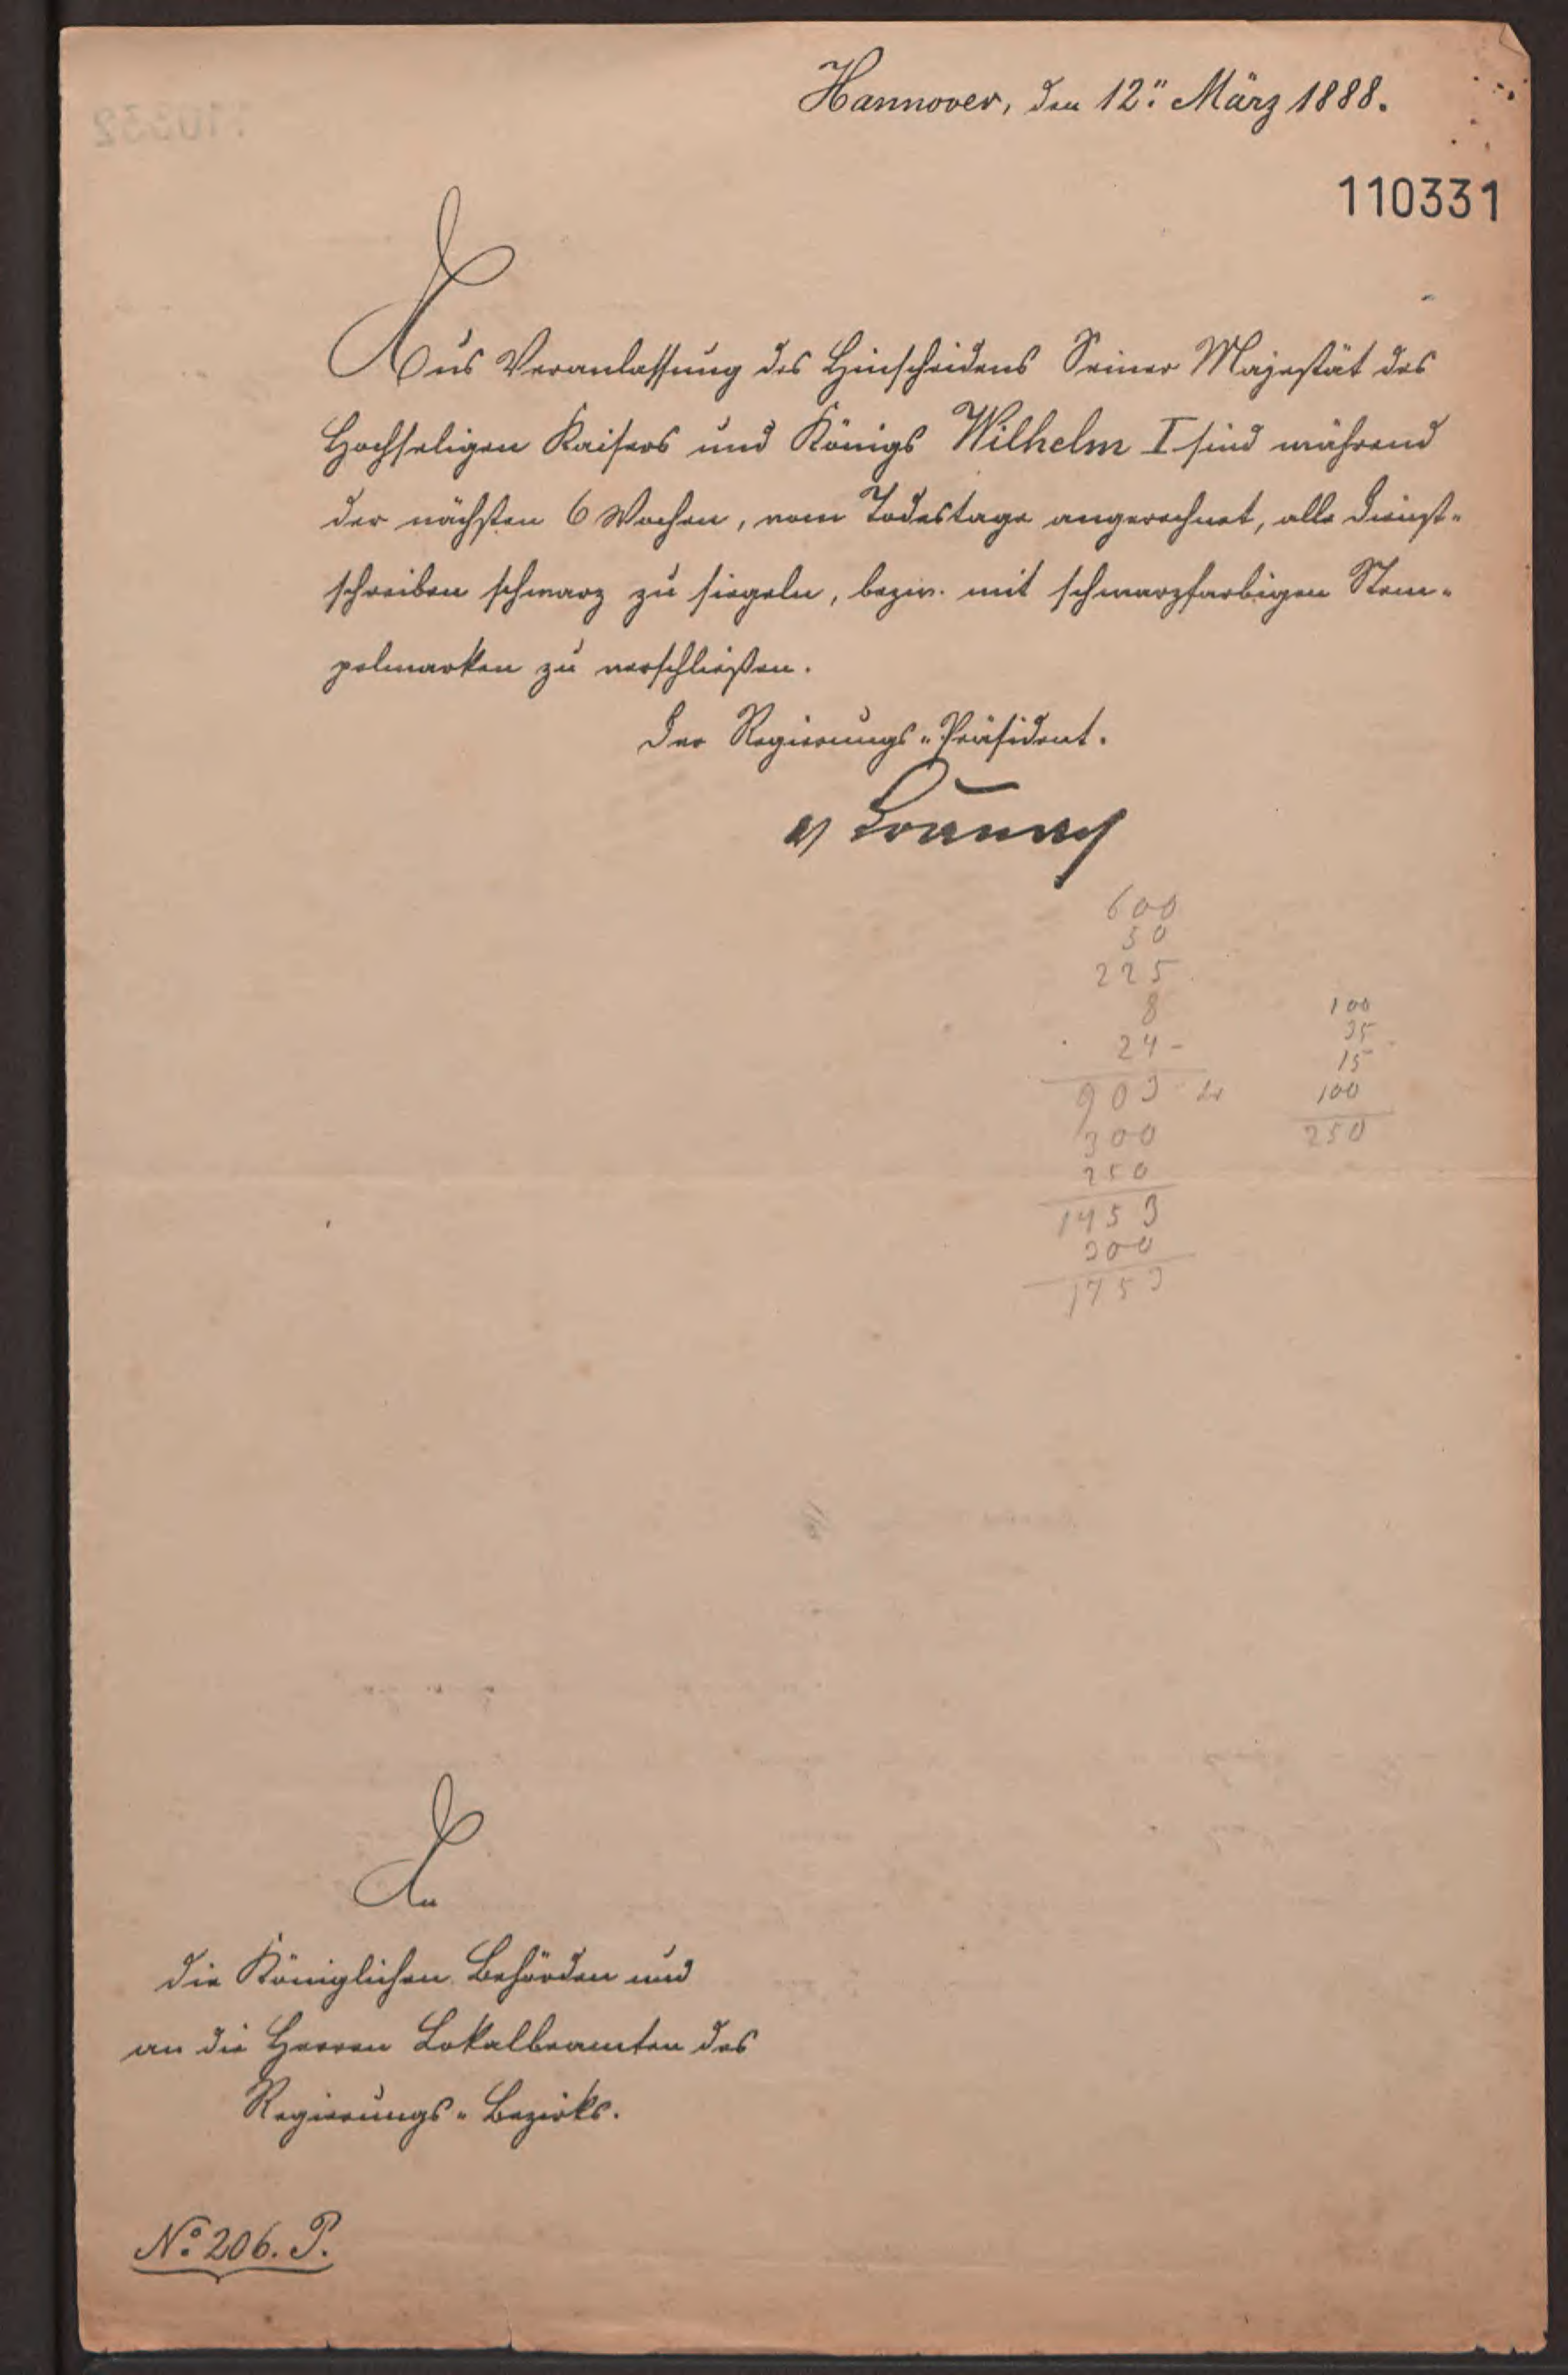 Hannover, den 12. März 1888.
110331
Aus Veranlassung des Hinscheidens Seiner Majestät des
Hochseligen Kaisers und Königs Wilhelm I sind während
der nächsten 6 Wochen, vom Todestage angerechnet, alle Dienst-
schreiben schwarz zu siegeln, bezw. mit schwarzfarbigen Stem-
pelmarken zu verschließen.
Der Regierungs-Präsident.
600
50
225
8
24-
903
300
250
1453
300
1753
100
35
15
100
250
An
die Königlichen Behörden und
an die Herren Lokalbeamten des
Regierungs-Bezirks.
No. 206. P.